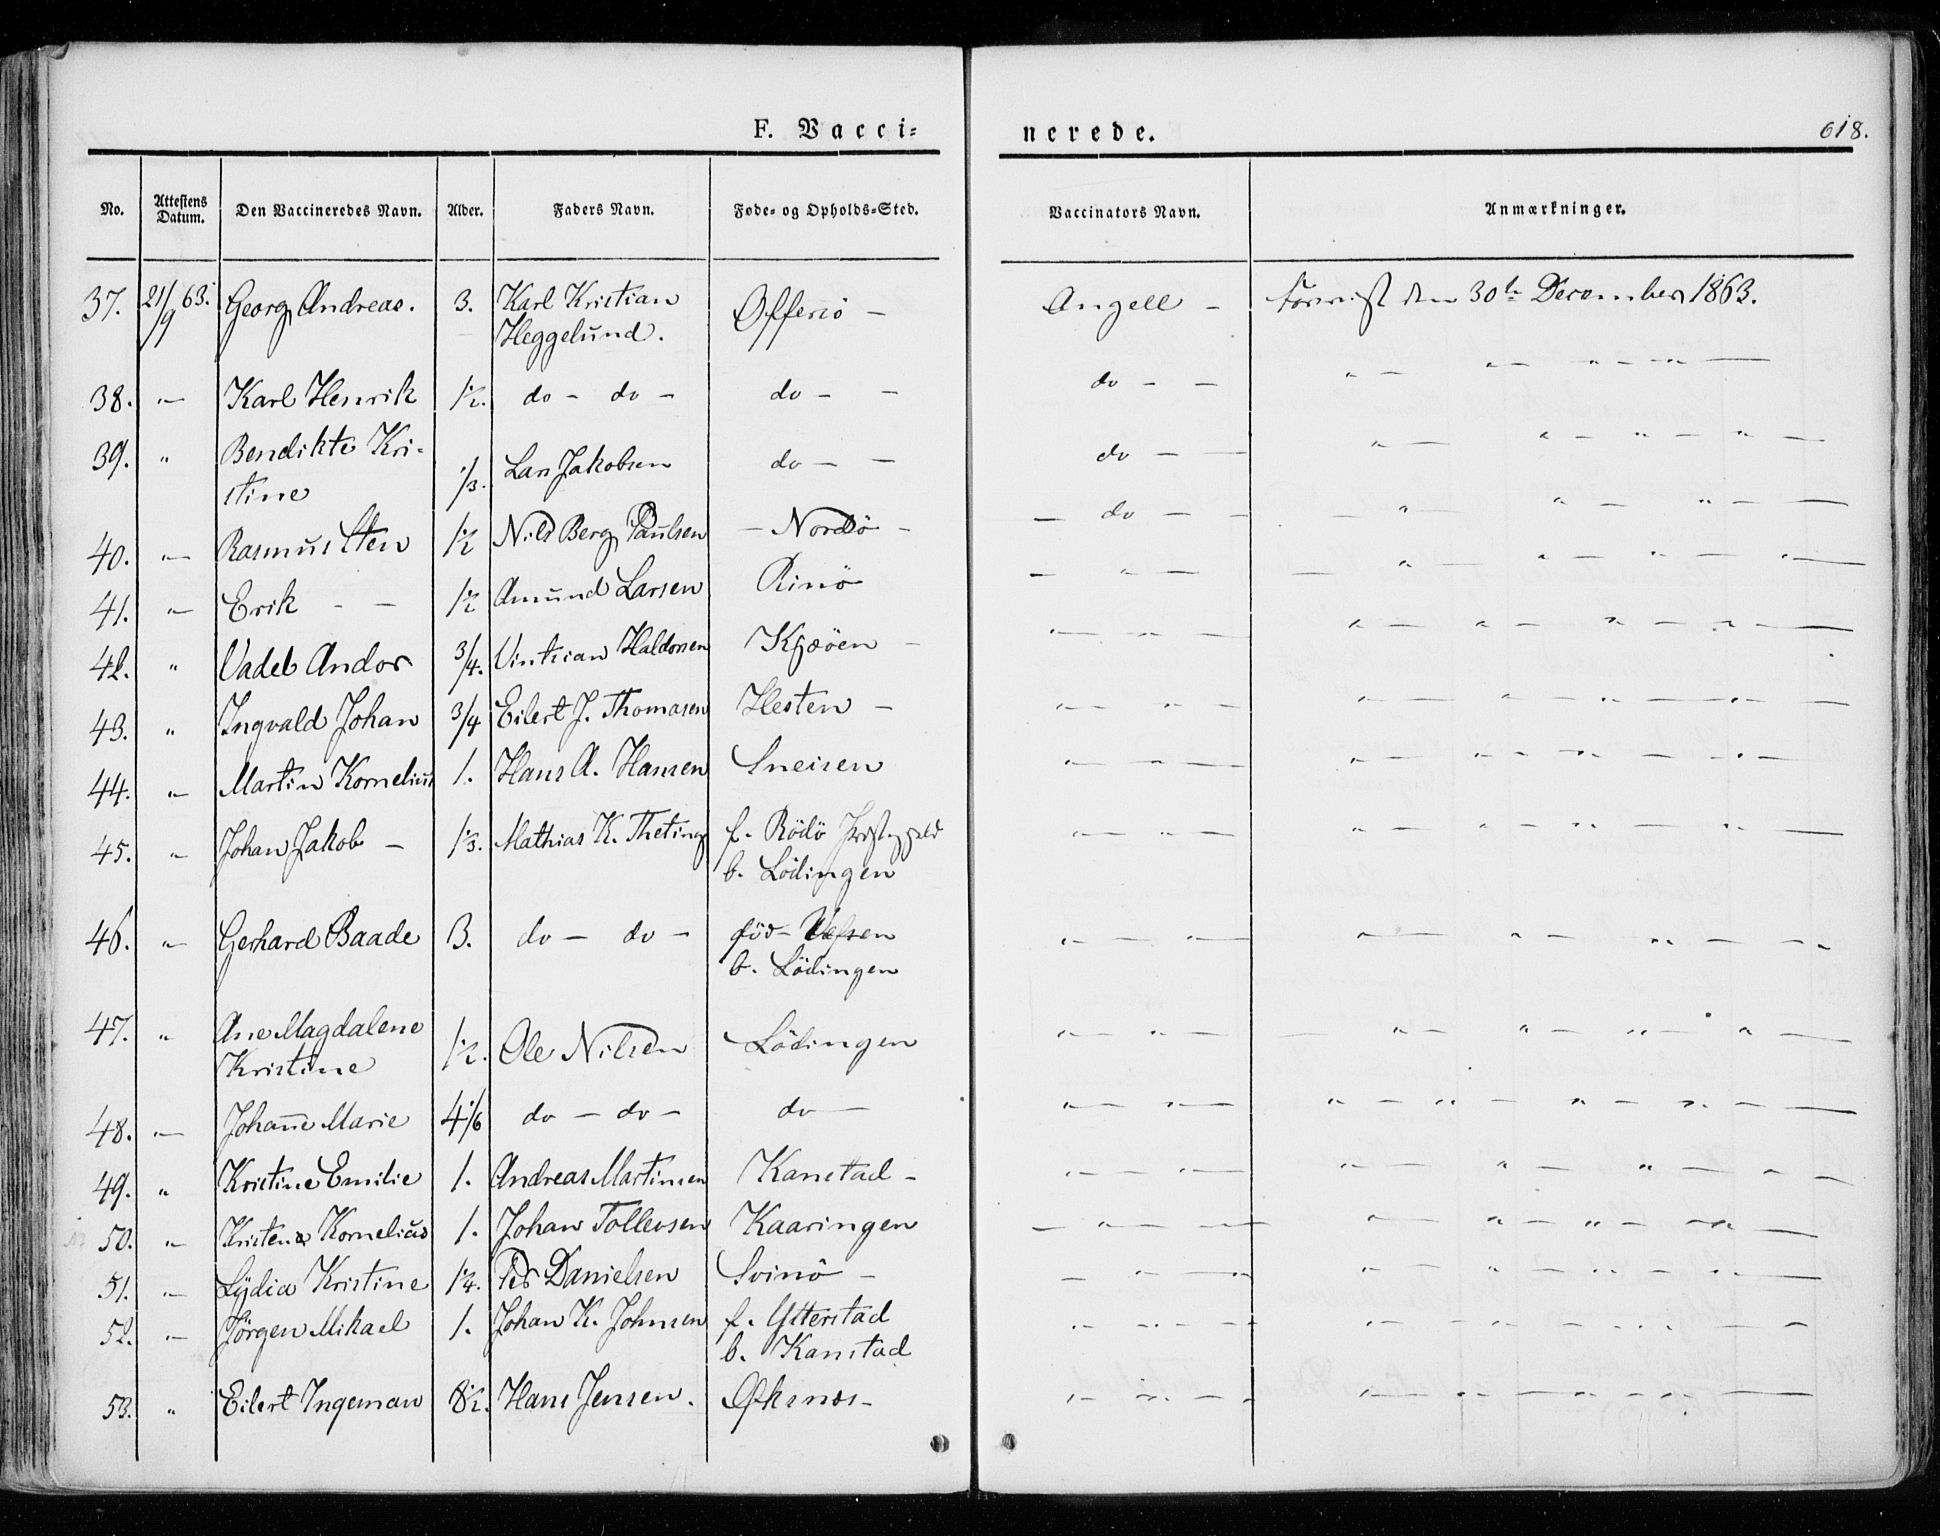 F. Vacci-
nerede.
618.
No. Attestens Datum. Den Vaccineredes Navn. Alder. Faders Navn. Føde- og Opholds-Sted. Vaccinators Navn. Anmærkninger.
37. 21/9 63. Georg Andreas. 3. Karl Kristian Offersö - Angell - Forevist den 30te December 1863.
Heggelund.
38. " Karl Henrik 1/2. do - do - do - - do - - " - " - " - " -
39. " Bendikte Kri- 1/3. Lars Jakobsen do - - do - - " - " - " - " -
stine
40. " Rasmus Sten 1/2 Nils Berg Paulsen - Nordö - - do - - - " - " - " -
41. " Erik - - 1/2 Amund Larsen Rinö - " - - - " - " - " - " -
42. " Andor 3/4. Haldorsen Kjæöen - " - " - " - " - " - " -
43. " Ingvald Johan 3/4 Eilert J. Thomasen Hesten - " - " - " - " - " - " -
44. " Martin Kornelius 1. Hans A. Hansen Sneisen " - " - " - " - " - " -
45. " Johan Jakob - 1/3. Mathias K. Theting f. Rödö Præstegjeld " - " - " - " - " - " -
b. Lödingen
46. " Gerhard Baade 3. do - do - föd - Vefsen " - " - " - " - " - "
b. Lödingen
47. " Ane Magdalene 1/2. Ole Nilsen Lödingen " - " - - " - " - " - " -
Kristine
48. " Johanne Marie 4 1/6 do - do - do - " - " - " - " - " - " -
49. " Kristine Emilie 1. Andreas Martinsen Kanstad - " - " - " - " - " - " -
50. " Kornelius 1. Johan Tollevsen Kaaringen - " - " - " - " - " - " -
51. " Lydia Kristine 1/4. Peder Danielsen Svinö - - " - " - " - " - " - " -
52. " Jörgen Mikael 1. Johan K. Johnsen f. Ytterstad " - " - " - " - " - " -
b. Kanstad
53. " Eilert Ingeman 8 1/2. Hans Jensen. Öksnæs - " - " - " - " - " - " -